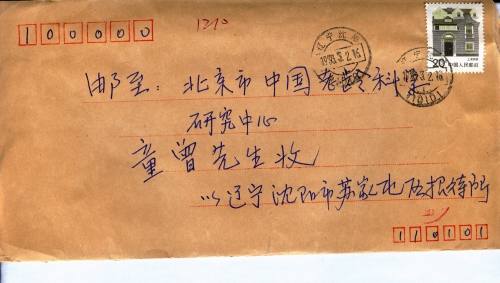 100000
1210
辽宁沈阳
1993.2.16
20 中国人民邮政
110101
邮至:北京市中国老龄科是
研究中心
童曾先生收
以辽宁沈阳市苏家屯区招待所
110101